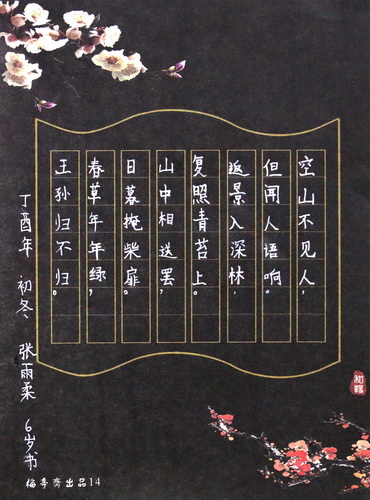 空山不见人，
但闻人语响。
返景入深林，
复照青苔上。
山中相送罢，
日暮掩柴扉。
春草年年绿，
王孙归不归。
丁酉年 初冬 张雨柔 6岁书
梅亭斋出品14